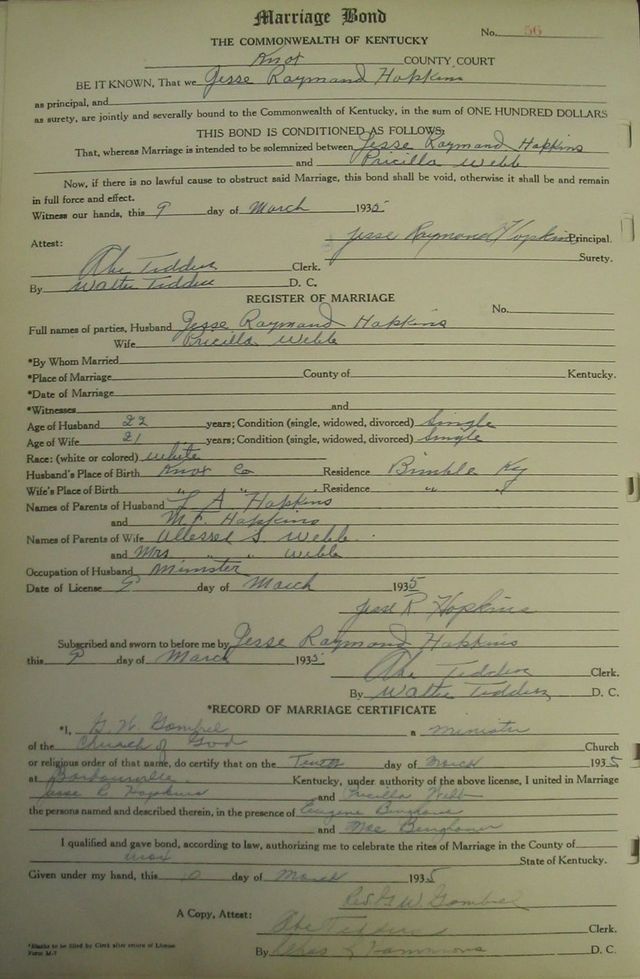 Marriage Bond
No. 56
THE COMMONWEALTH OF KENTUCKY
Knox COUNTY COURT
BE IT KNOWN, That we Jesse Raymond Hopkins
as principal, and
as surety, are jointly and severally bound to the Commonwealth of Kentucky, in the sum of ONE HUNDRED DOLLARS
THIS BOND IS CONDITIONED AS FOLLOWS:
That, whereas Marriage is intended to be solemnized between Jesse Raymond Hopkins
and Pricilla Webb
Now, if there is no lawful cause to obstruct said Marriage, this bond shall be void, otherwise it shall be and remain
in full force and effect.
Witness our hands, this 9 day of March 1935
Jesse Raymond Hopkins Principal.
Attest: Surety.
Clerk.
By Walter D. C.
REGISTER OF MARRIAGE
No.
Full names of parties, Husband Jesse Raymond Hopkins
Wife Pricilla Webb
*By Whom Married
*Place of Marriage County of Kentucky.
*Date of Marriage
*Witnesses and
Age of Husband 22 years; Condition (single, widowed, divorced) Single
Age of Wife 21 years; Condition (single, widowed, divorced) Single
Race: (white or colored) white
Husband's Place of Birth Knox Co Residence Bimble Ky
Wife's Place of Birth " " Residence " "
Names of Parents of Husband A Hopkins
and M.F. Hopkins
Names of Parents of Wife S. Webb
and Mrs " " Webb
Occupation of Husband Minister
Date of License 9 day of March 1935
Jesse R Hopkins
Subscribed and sworn to before me by Jesse Raymond Hopkins
this 9 day of March 1935
Clerk.
By Walter D. C.
*RECORD OF MARRIAGE CERTIFICATE
*I, G. W. Gambrel a minister
of the Church of God Church
or religious order of that name, do certify that on the Tenth day of March 1935
at Barbourville Kentucky, under authority of the above license, I united in Marriage
Jesse R Hopkins and Pricilla Webb
the persons named and described therein, in the presence of Eugene
and Mae
I qualified and gave bond, according to law, authorizing me to celebrate the rites of Marriage in the County of
Knox State of Kentucky.
Given under my hand, this 10 day of March 1935
Rev. G. W. Gambrel
A Copy, Attest: Clerk.
*Blanks to be filled by Clerk after return of License
Form M-7 By Hammons D. C.